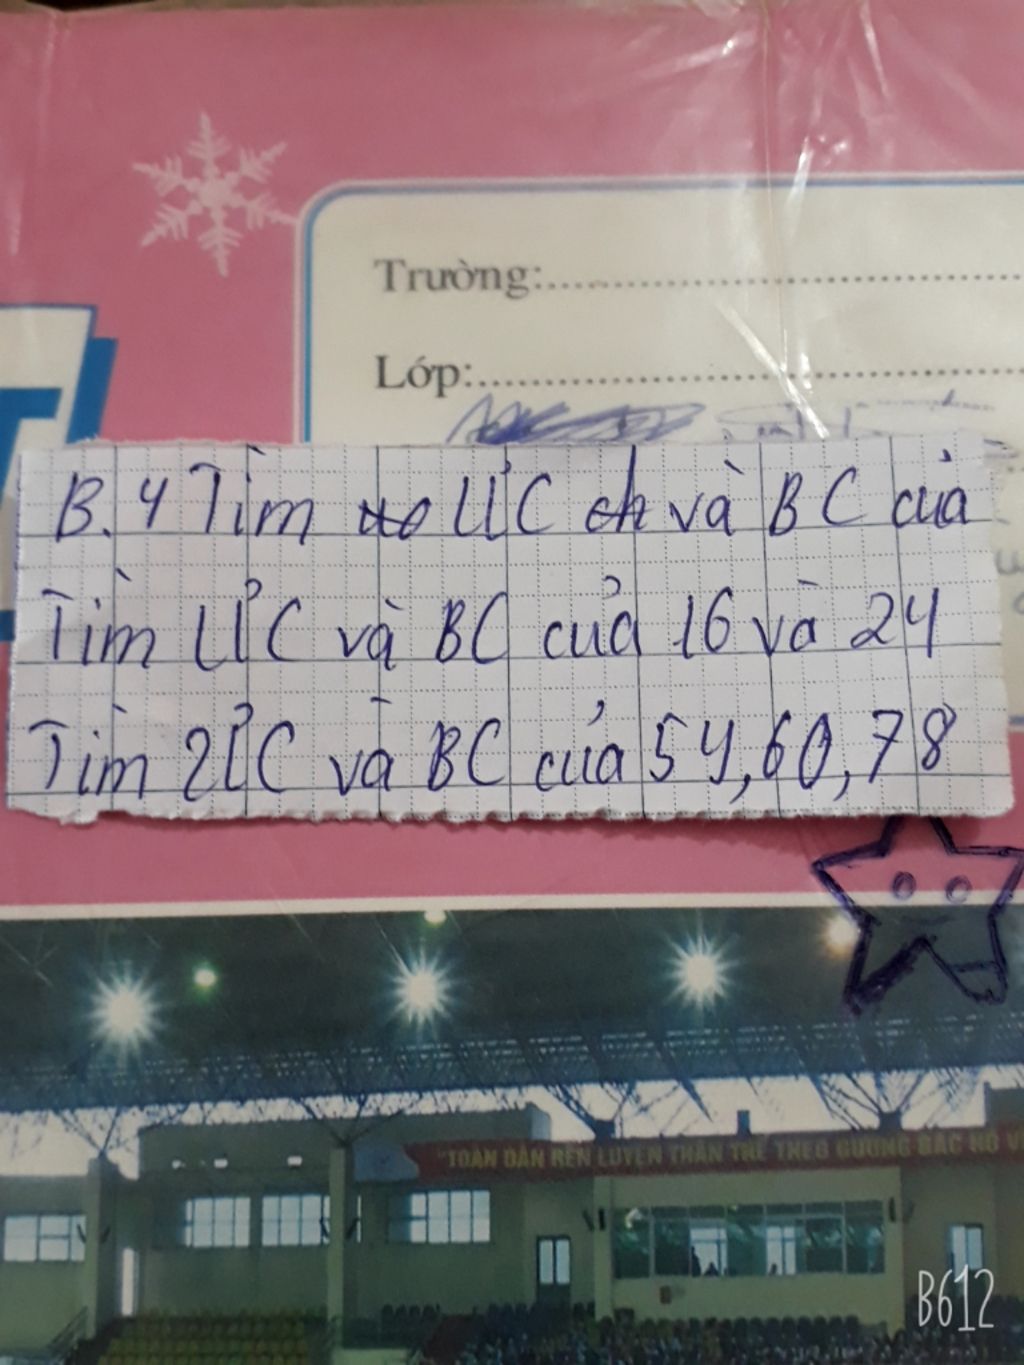 Trường:
Lớp:
B.4 Tìm ƯC và BC của
Tìm ƯC và BC của 16 và 24
Tìm ƯC và BC của 54, 60, 78
"TOÀN DÂN RÈN LUYỆN THÂN THỂ THEO GƯƠNG BÁC HỒ V
B612